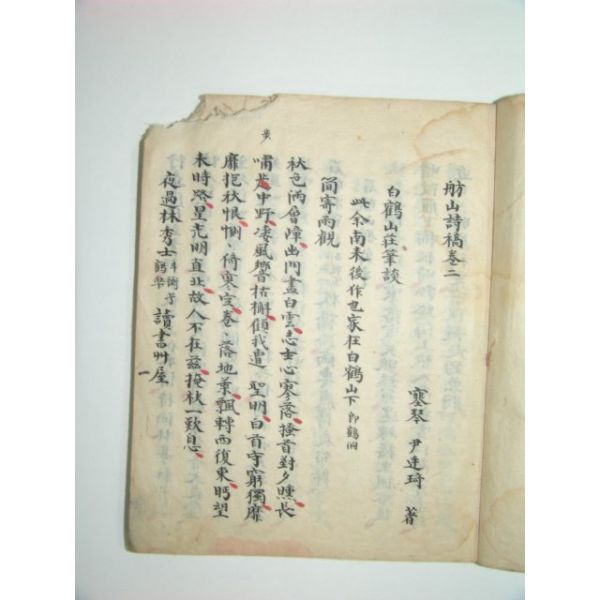 舫山詩稿卷二
寒琴 尹廷琦 著
白鶴山莊筆談
此余南來後作也家在白鶴山下 卽鶴洞
簡寄雨觀
秋色滿會嶂出門盡白雲志士心寥落搔首對夕曛長
嘯步中野凄風響枯槲顧我遭 聖明白首守窮獨靡
靡抱秋恨惻倚寒空卷落地葉飄轉西復東眄望
末時發星光明直北故人不在玆掩秋一歎息
夜過林秀士 斗衡号鶴樂 讀書艸屋
一
步